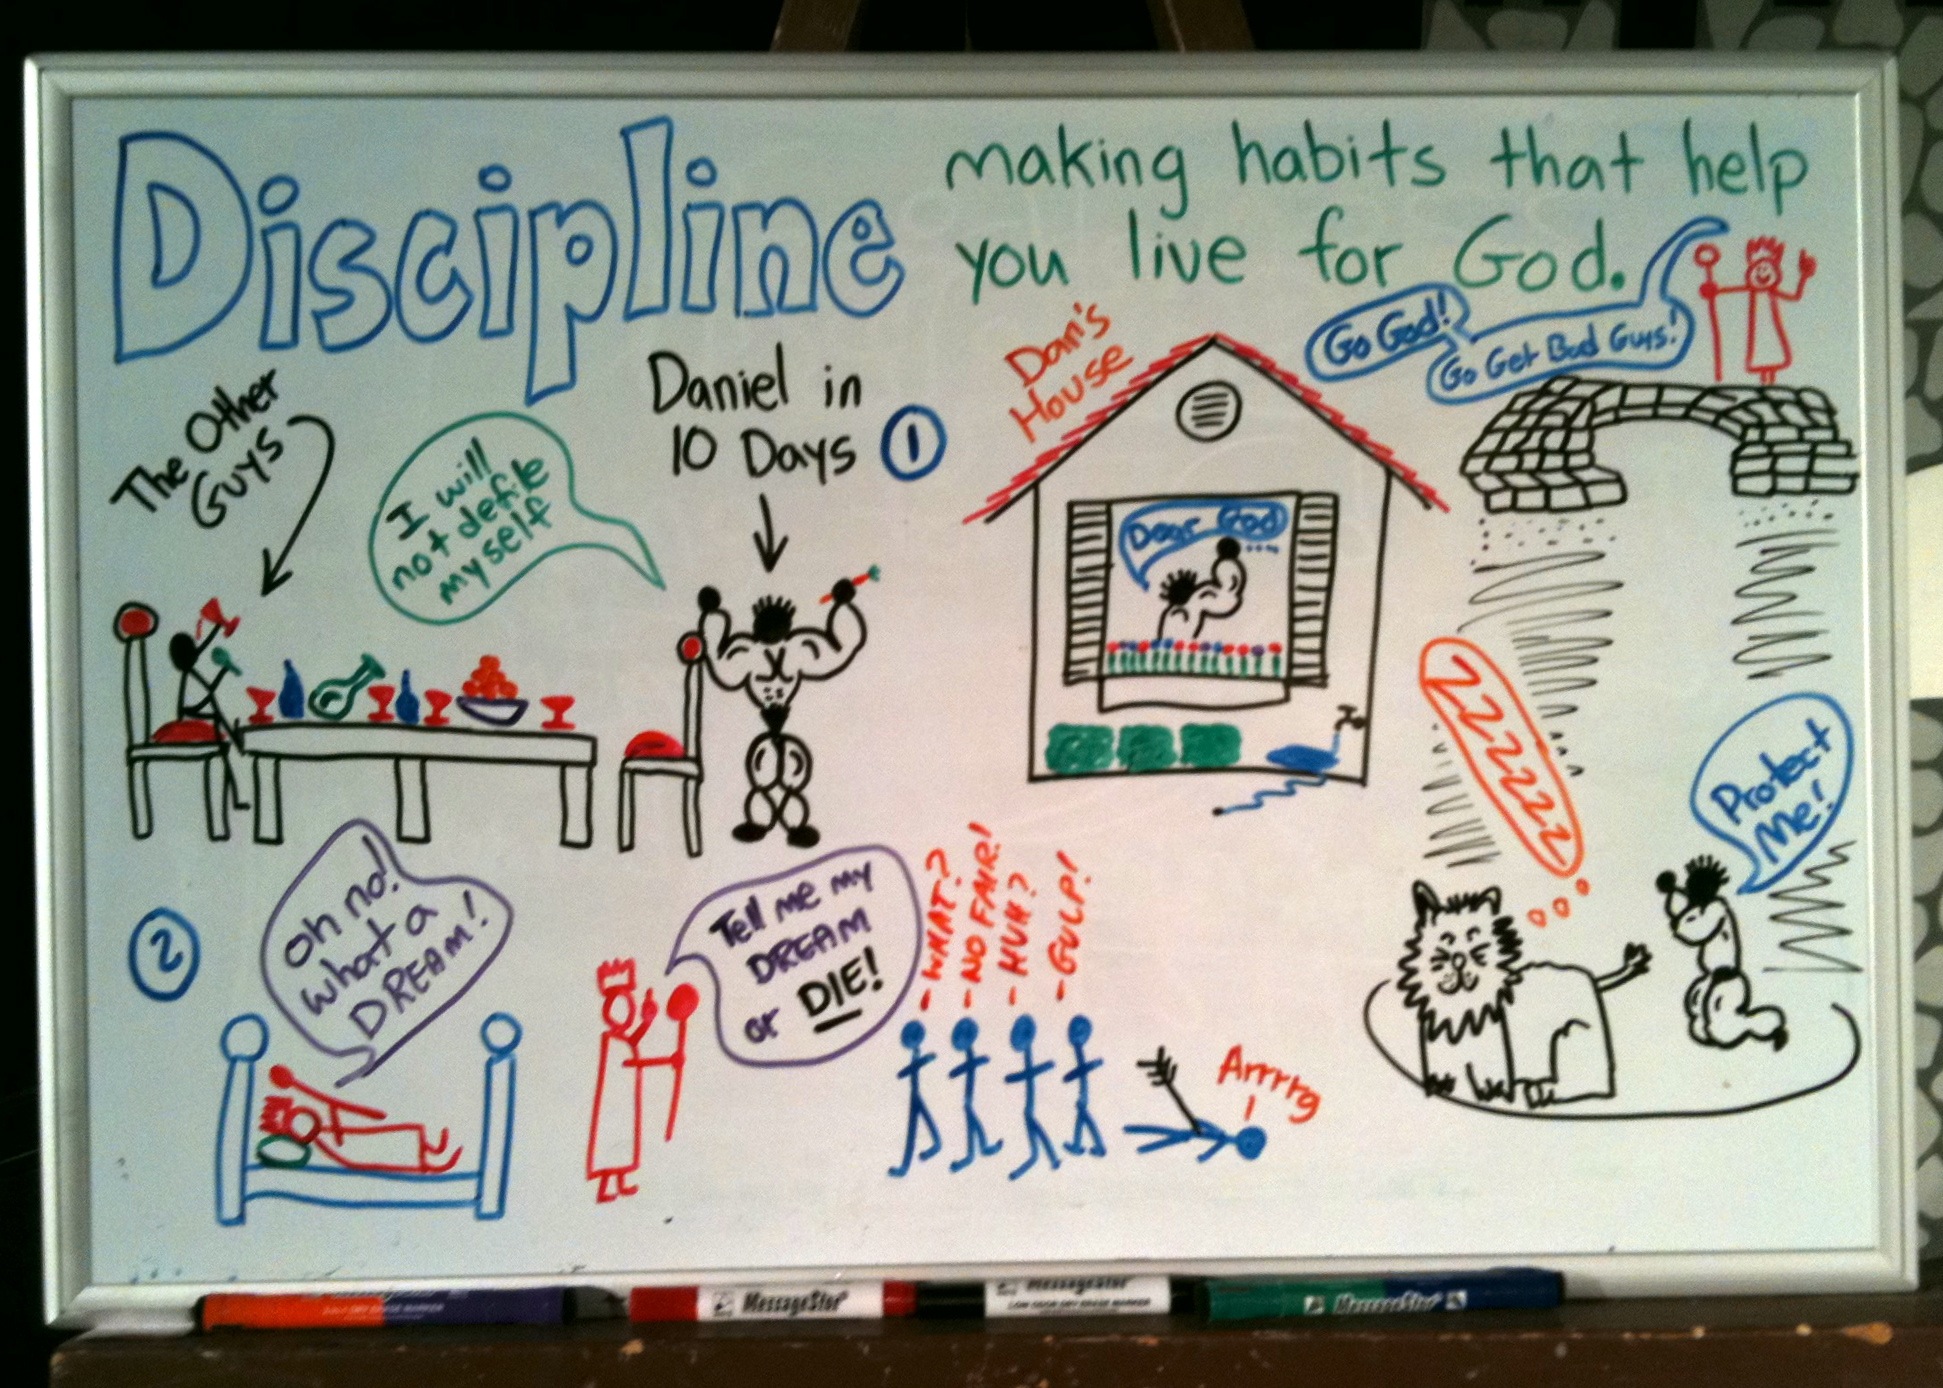 Discipline
making habits that help
you live for God.
The Other
Guys
I will
not defile
myself
Daniel in
10 Days
1
Dan's
House
Dear God
....
Go God!
Go Get Bad Guys!
ZZZZZZ
Protect
Me!
2
Oh no!
what a
DREAM!
Tell me my
DREAM
or DIE!
- WHAT?
- NO FAIR!
- HUH?
- GULP!
Arrrrg
!
MessageStor®
MessageStor®
LOW ODOR DRY ERASE MARKER
MessageStor®